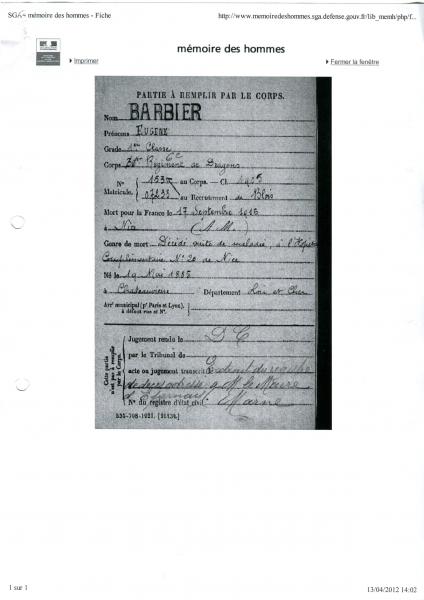 SGA - mémoire des hommes - Fiche
http://www.memoiredeshommes.sga.defense.gouv.fr/lib_memh/php/f...
mémoire des hommes
Imprimer
Fermer la fenêtre
PARTIE À REMPLIR PAR LE CORPS.
Nom BARBIER
Prénoms Eugène
Grade Classe
Corps Régiment de Dragons
N° Matricule. au Corps. — Cl.
au Recrutement de Blois
Mort pour la France le 17 Septembre
à Nice (A.M.)
Genre de mort Décédé suite de maladie, à l'Hôpital
Complémentaire N° 20 de Nice
Né le 19 Mai
à Département Loir et Cher
Arrt municipal (pr Paris et Lyon), à défaut rue et N°.
Cette partie n'est pas à remplir par le Corps.
Jugement rendu le D C
par le Tribunal de
acte ou jugement transcrit Extrait du registre
de décès adressé à M. le Maire
d'Epernay
N° du registre d'état civil Marne
534-708-1921. [26434.]
1 sur 1
13/04/2012 14:02